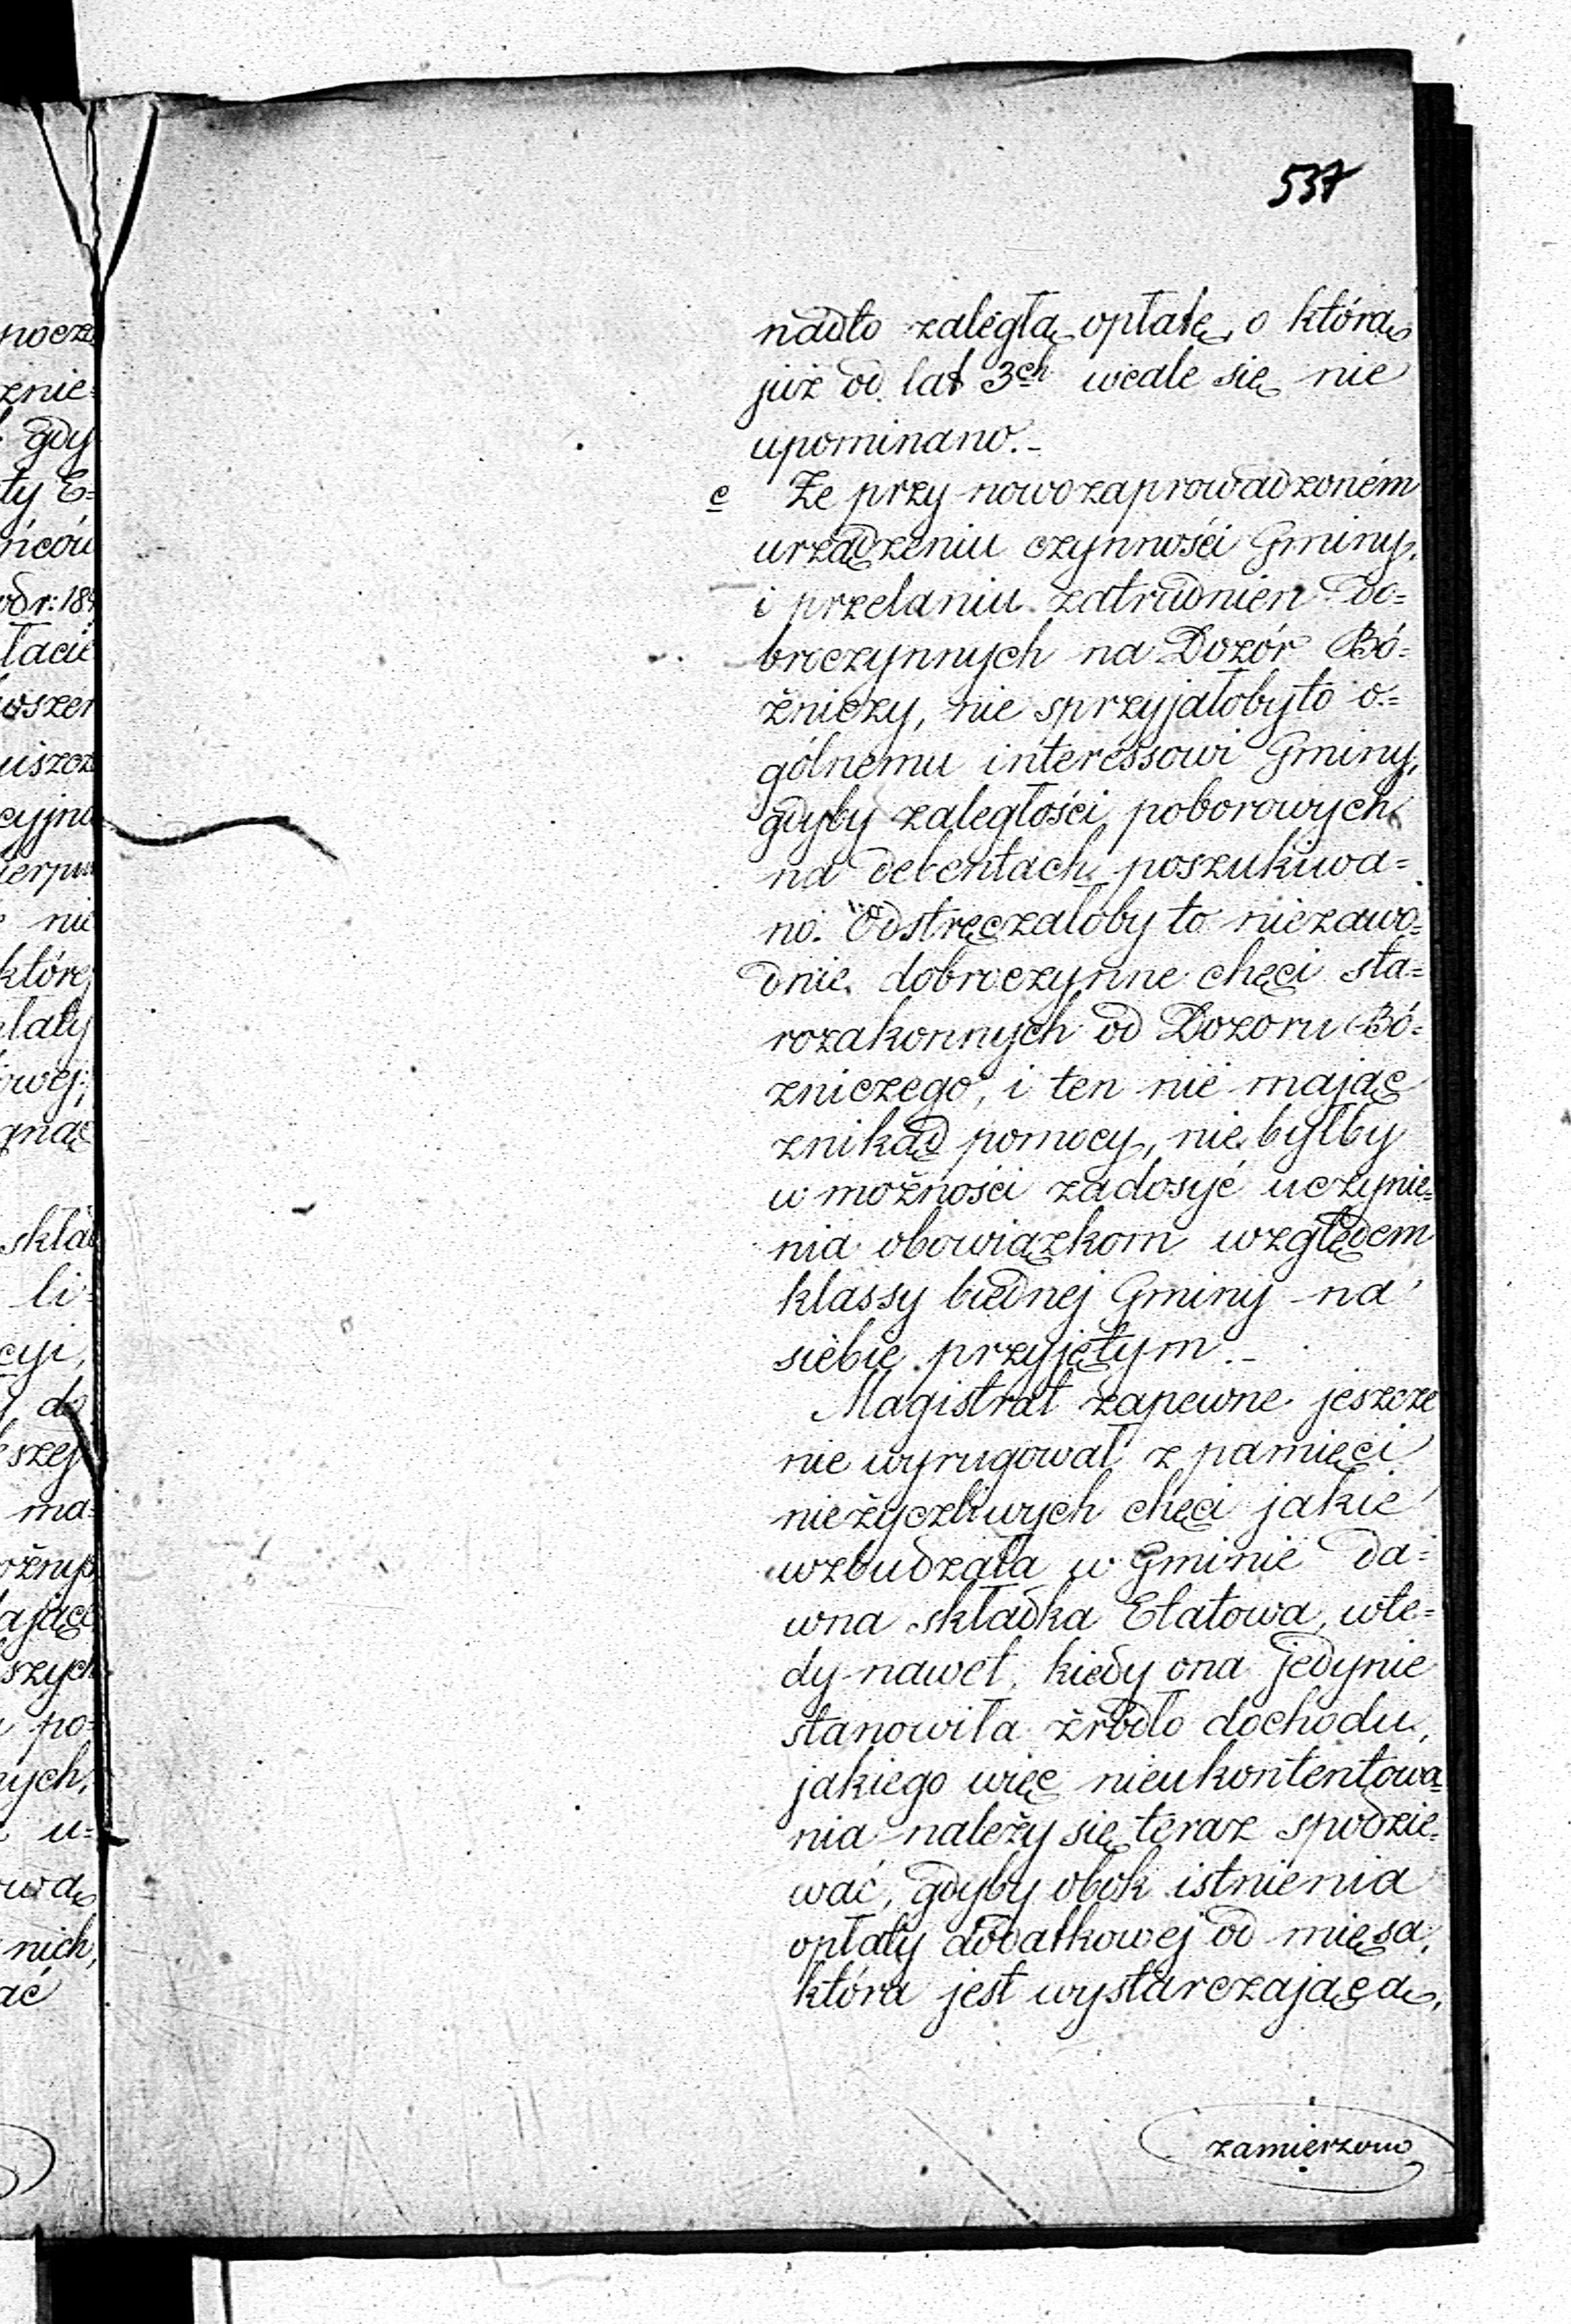 537
nadto zaległą opłatę, o którą
już od lat 3ch wcale się nie
upominano.-
c Że przy nowozaprowadzoném
urządzeniu czynności Gminy,
i przelaniu zatrudnień do=
broczynnych na Dozór Bó=
żniczy, nie sprzyjałobyto o=
gólnemu interessowi Gminy,
gdyby zaległości poborowych
na debentach poszukiwa=
no. Odstręczałoby to niezawo=
dnie dobroczynne chęci sta=
rozakonnych od Dozoru Bó=
zniczego, i ten nie mając
znikąd pomocy, nie byłby
w możności zadosyć uczynie=
nia obowiązkom względem
klassy biednej Gminy na
siebie przyjętym.-
Magistrat zapewne jeszcze
nie wyrugował z pamięci
nieżyczliwych chęci jakie
wzbudzała w Gminie da=
wna składka Etatowa, wte=
dy nawet, kiedy ona jedynie
stanowiła źródło dochodu,
jakiego więc nieukontentowa=
nia należy się teraz spodzie=
wać, gdyby obok istnienia
opłaty dodatkowej od mięsa,
która jest wystarczającą,
zamierzono